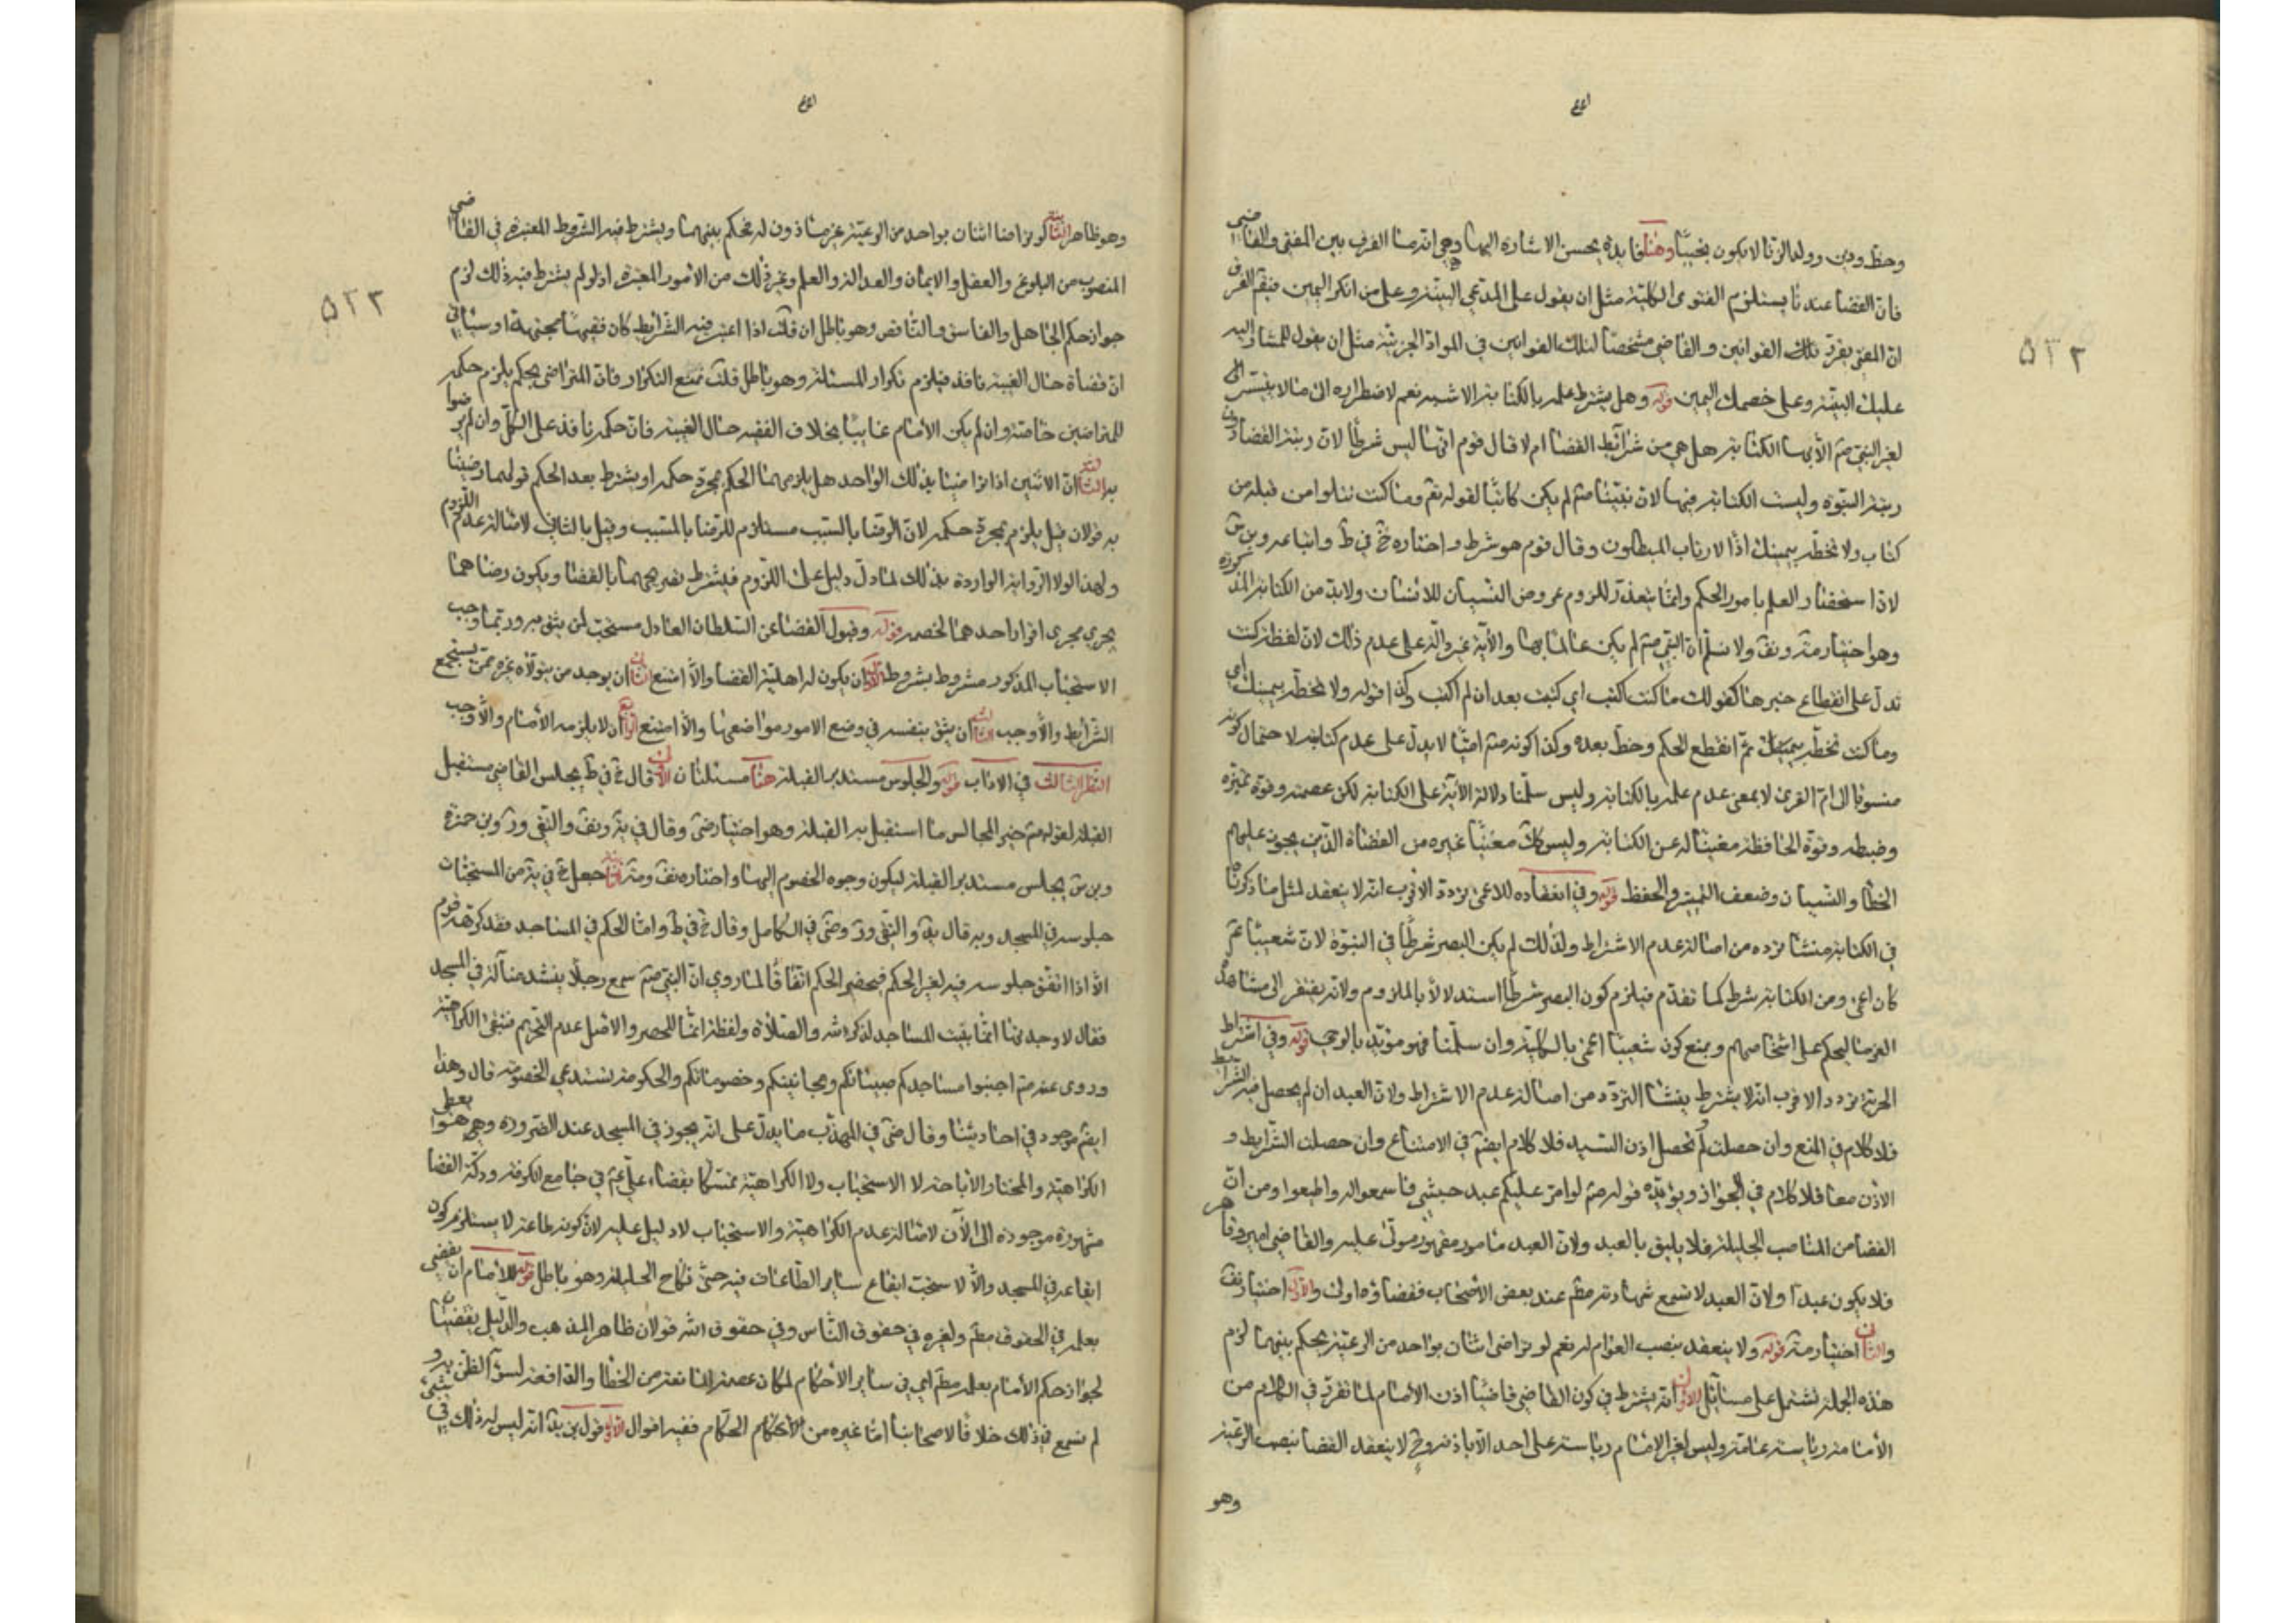 وحظ ودين وولد الزنا لا يكون نجيبًا وهنا فايدة يحسن الاشارة اليها وهي انه ما الفرق بين المفتي والقاضي
فان القضا عندنا يستلزم الفتوى الكلية مثل ان يقول على المدعي البينة وعلى من انكر اليمين فنقم الفرق
ان المفتي يقرر تلك القوانين والقاضي مشخصًا لتلك القوانين في المواد الجزئية مثل ان يقول للمشار اليه
عليك البينة وعلى خصمك اليمين قوله وهل يشترط علمه بالكتابة الاشبه نعم لاضطراره الى ما لا يتيسر
لغير النبي صم الا بها الكتابة هل هي من شرائط القضا ام لا قال قوم انها ليس شرطًا لان رتبة القضا دون
رتبة النبوة وليست الكتابة فيها لان نبينا صم لم يكن كاتبًا لقوله تع وما كنت تتلوا من قبله من
كتاب ولا تخطه بيمينك اذًا لارتاب المبطلون وقال قوم هو شرط واختاره خ في ط واتباعه وبن س
لاذا ستحقتار العلم بامور الحكم وانما يتعذر للزوم عروض النسيان للانسان ولا بد من الكتابة المذكورة
وهو اختيار مة ونف ولا نسلم ان النبي صم لم يكن عالمًا بها والآية غير دالة على عدم ذلك لان لفظة كنت
تدل على انقطاع خبرها كقولك ما كنت اكتب اي كتبت بعد ان لم اكتب وكذا قوله ولا تخطه بيمينك اي
وما كنت تخطه بيمينك ثم انقطع الحكم وخط بعده وكذا كونه صم اميًا لا يدل على عدم كتابته لاحتمال كونه
منسوبًا الى ام القرى لا بمعنى عدم علمه بالكتابة وليس سلمنا دلالة الآية على الكتابة لكن عصمته وقوة تميزه
وضبطه وقوة الحافظة مغنيًا له عن الكتابة وليس كك معنيًا غيره من القضاة الذين يجوز عليهم
الخطأ والنسيان وضعف التميز والحفظ قوله وفي انعقاده للاعمى تردد الاقرب انه لا ينعقد لمثل ما ذكرنا
في الكتابة منشا تردده من اصالة عدم الاشتراط ولذلك لم يكن البصر شرطًا في النبوة لان شعيبًا عم
كان اعمى ومن الكتابة شرط كما تقدم فيلزم كون البصر شرطًا استدلالًا بالملزوم ولانه يفتقر الى مشاهدة
الغرما ليحكم على اشخاصهم ويمنع كون شعيبًا اعمى بالكلية وان سلمنا فهو مؤيد بالوحي قوله وفي اشتراط
الحرية تردد الاقرب انه لا يشترط ينشا التردد من اصالة عدم الاشتراط ولان العبد ان لم يحصل فيه الشرائط
فلا كلام في المنع وان حصلت ولم تحصل اذن السيد فلا كلام ايضًا في الامتناع وان حصلت الشرايط و
الاذن معًا فلا كلام في الجواز ويؤيده قوله صم لو امّر عليكم عبد حبشي فاسمعوا له واطيعوا ومن ان
القضا من المناصب الجليلة فلا يليق بالعبد ولان العبد مامور مقهور مولّى عليه والقاضي امير وقاهر
فلا يكون عبدًا ولان العبد لا تسمع شهادته مطم عند بعض الاصحاب فقضاؤه اولى والاول اختيار نف
والثاني اختيار مة قوله ولا ينعقد بنصب العوام له نعم لو تراضى اثنان بواحد من الرعية يحكم بينهما لزم
هذه الجملة تشتمل على مسائل الاول انه يشترط في كون القاضي قاضيًا اذن الامام لما تقرر في الكلام من
الأمامة رياسة عامة وليس لغير الامام رياسة على احد الا باذنه وح لا ينعقد القضا بنصب الرعية
وهو
٥٢٢
وهو ظاهر الثانية لو تراضا اثنان بواحد من الرعية غير ماذون له يحكم بينهما ويشترط فيه الشروط المعتبرة في القاضي
المنصوب من البلوغ والعقل والايمان والعدالة والعلم وغير ذلك من الامور المعتبرة اذ لو لم يشترط فيه ذلك لزم
جواز حكم الجاهل والفاسق والناقص وهو باطل ان قلت اذا اعتبر فيه الشرايط كان فقيهًا مجتهدًا وسيأتي
ان قضاه حال الغيبة نافذ فيلزم تكرار المسئلة وهو باطل قلت نمنع التكرار فان المتراضى بحكمه يلزم حكمه
للمتراضين خاصة وان لم يكن الأمام غايبًا بخلاف الفقيه حال الغيبة فان حكمه نافذ على الكل وان لم يرضوا
به الثالثة ان الاثنين اذا تراضيا بذلك الواحد هل يلزمهما الحكم بمجرد حكمه او يشترط بعد الحكم قولهما رضينا
به قولان قيل يلزم بمجرد حكمه لان الرضا بالسبب مستلزم للرضا بالمسبب وقيل بالثاني لاصالة عدم اللزوم
ولهذا لولا الرواية الواردة بذلك لما دل دليل على اللزوم فيشترط تصريحهما بالقضا ويكون رضاهما
يجري مجرى اقرار احدهما لخصمه قوله وقبول القضا عن السلطان العادل مستحب لمن يثق بنفسه وربما وجب
الاستحباب المذكور مشروط بشروط الاول ان يكون له اهلية القضا والّا امتنع الثاني ان يوجد من يتولاه غيره ممن يستجمع
الشرائط والّا وجب الثالث ان يثق بنفسه في وضع الامور مواضعها والا امتنع الرابع ان لا يلزمه الأمام والّا وجب
النظر الثالث في الاداب قوله والجلوس مستدبر القبلة هنا مسئلتان الاولى قال خ في ط يجلس القاضي مستقبل
القبلة لقوله صم خير المجالس ما استقبل به القبلة وهو اختيار ضى وقال في ية ونف والتقي ور وبن حمزة
وبن س يجلس مستدبر القبلة ليكون وجوه الخصوم اليها واختاره نف ومة الثانية جعل خ في ية من المستحبات
جلوسه في المسجد وبه قال ية والتقي ور وضى في الكامل وقال خ في ط واما الحكم في المساجد فقد كرهه قوم
الّا اذا اتفق جلوسه فيه لغير الحكم فيحضر الحكم اتفاقًا لما روي ان النبي صم سمع رجلًا ينشد ضالّة في المسجد
فقال لا وجدتها انما بنيت المساجد لذكر الله والصلاة ولفظة انما للحصر والاصل عدم التحريم فتبقى الكراهية
وروى عنه صم اجنبوا مساجدكم صبيانكم ومجانينكم وخصوماتكم والحكومة تستدعي الخصومة قال وهذا
ايضم موجود في احاديثنا وقال ضى في المهذب ما يدل على انه يجوز في المسجد عند الضرورة وهي هنا
الكراهية والمختار الأباحة لا الاستحباب ولا الكراهية تمسكًا بقضاء علي عم في جامع الكوفة ودكة القضا
مشهورة موجودة الى الآن لاصالة عدم الكراهية والاستحباب لا دليل عليه لان كونه طاعة لا يستلزم كون
ايقاعه في المسجد والّا لاستحب ايقاع ساير الطاعات فيه حتى نكاح الحليلة وهو باطل قوله للامام ان يقضي
بعلمه في الحقوق مطم ولغيره في حقوق الناس وفي حقوق الله قولان ظاهر المذهب والدليل يقتضيان
لجواز حكم الأمام بعلمه مطم اي في ساير الأحكام لمكان عصمته المانعة من الخطأ والدافعة لسوء الظن به و
لم نسمع في ذلك خلافًا لاصحابنا امّا غيره من الحكام ففيه اقوال الاول قول بن ية انه ليس له ذلك في شيء
٥٢٣